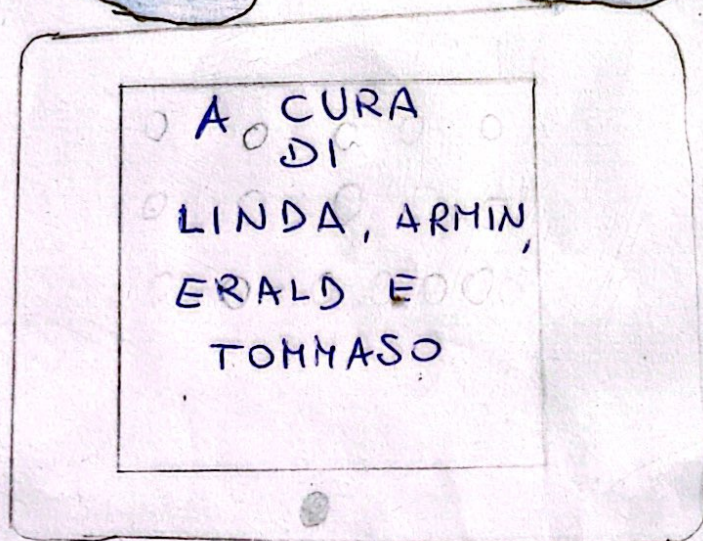 A CURA
DI
LINDA, ARMIN,
ERALD E
TOMMASO